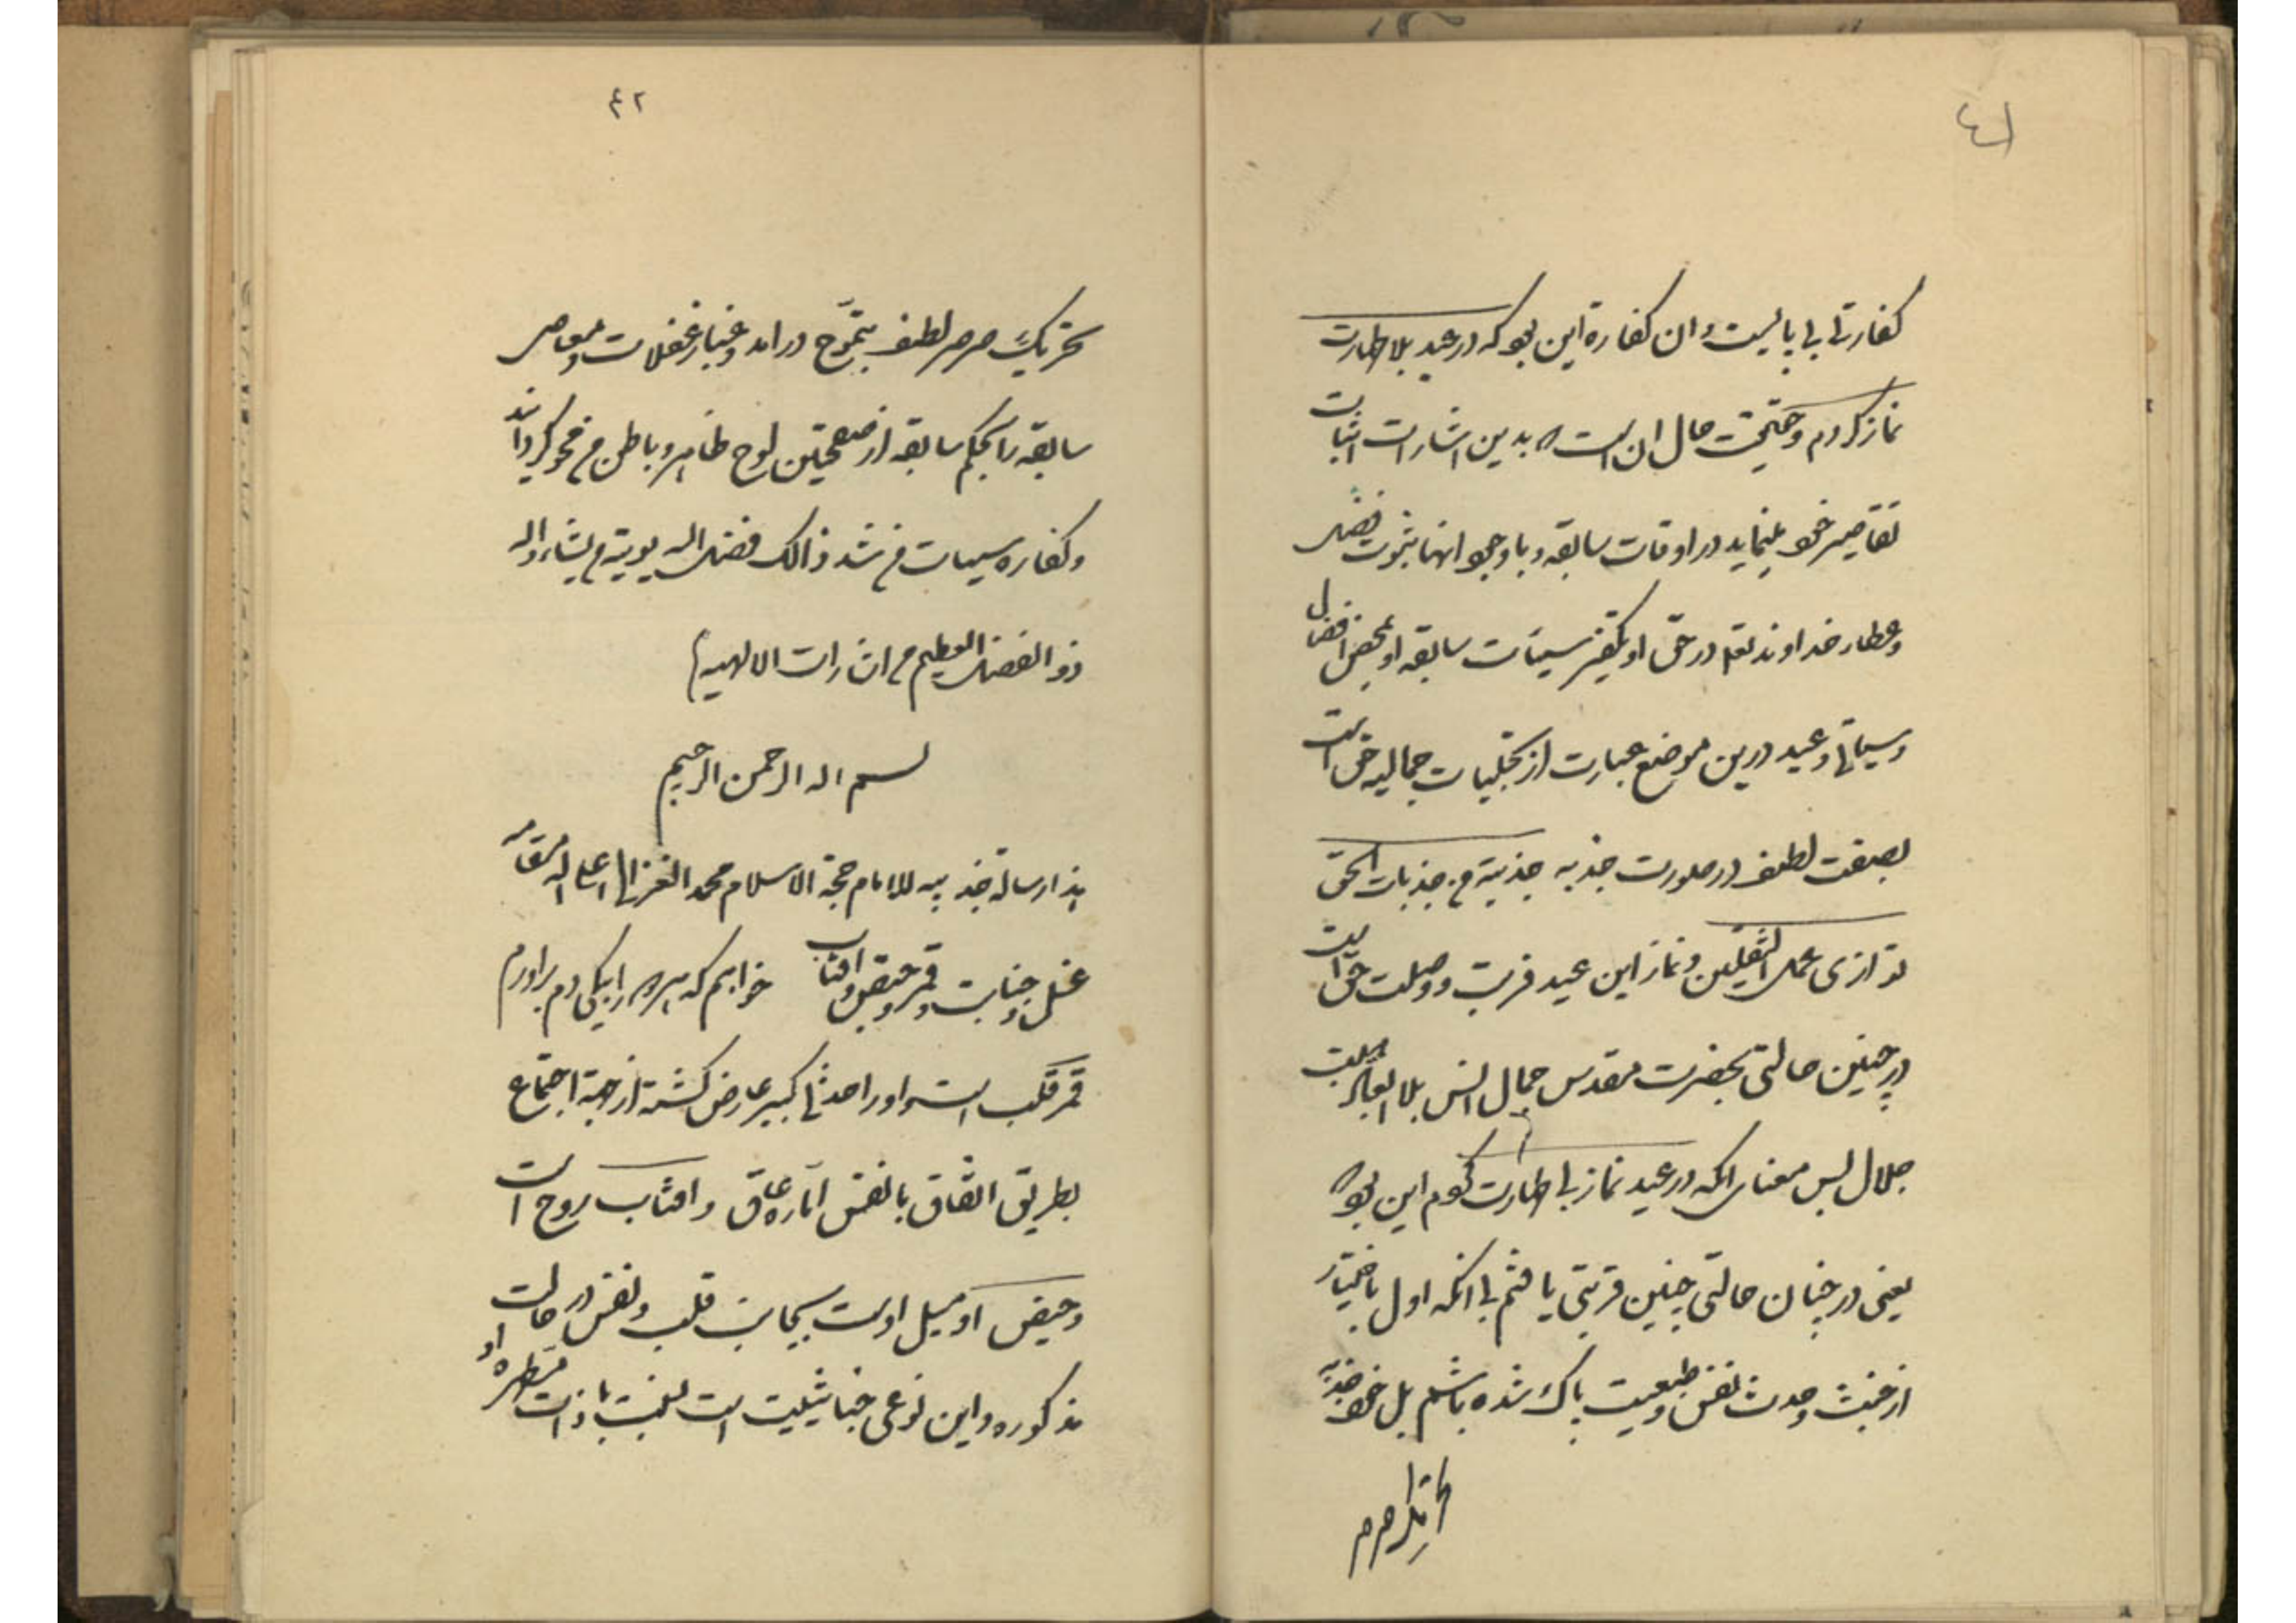 ٤١
كفارتی بایست و ان كفارة این بود كه در عید بلا طهارت
نماز كردم و حقیقت حال ان است كه بدین اشارات اثبات
تقاصیر خود مینماید در اوقات سابقه و با وجود انها بثبوت فضل
و عطاء خداوند تعم در حق او بتكفیر سیئات سابقه او بمحض افضال
و عید درین موضع عبارت از تجلیات جمالیه حق است
بصفت لطف در صورت جذبه جذبة من جذبات الحق
توازی عمل الثقلین و نماز این عید قربت و وصلت حق است
در چنین حالتی بحضرت مقدس جمال انس بلا
جلال پس معنای انكه در عید نماز بی طهارت كردم این بود كه
یعنی در چنان حالتی چنین قربتی یافتم بی انكه اول باختیار
از خبث و حدث نفس و طبیعت پاك شده باشم بل خود جذبه
تحریك صرصر
٤٢
تحریك صرصر لطف بتموج درامد و غبار غفلات و معاصی
سابقه را بحكم سابقه از صفحتین لوح ظاهر و باطن من محو كرداند
و كفاره سیات من شد ذالك فضل الله یوتیه من یشاء والله
ذو الفضل العظیم من اشارات الالهیه
بسم الله الرحمن الرحیم
هذا رسالة للامام حجة الاسلام محمد الغزالی اعلی الله مقامه
غسل و جنابت و قمر و حیض و افتاب خواهم كه هر سه را بیكی دم براورم
قمر قلب است و او را حدثی كبیر عارض كشته از جهة اجتماع
بطریق اتفاق با نفس اماره عاق و افتاب روح است
و حیض او میل اوست بجانب قلب و نفس در حالت
مذكوره و این نوعی خباثیت است نسبت با ذات مطهره او